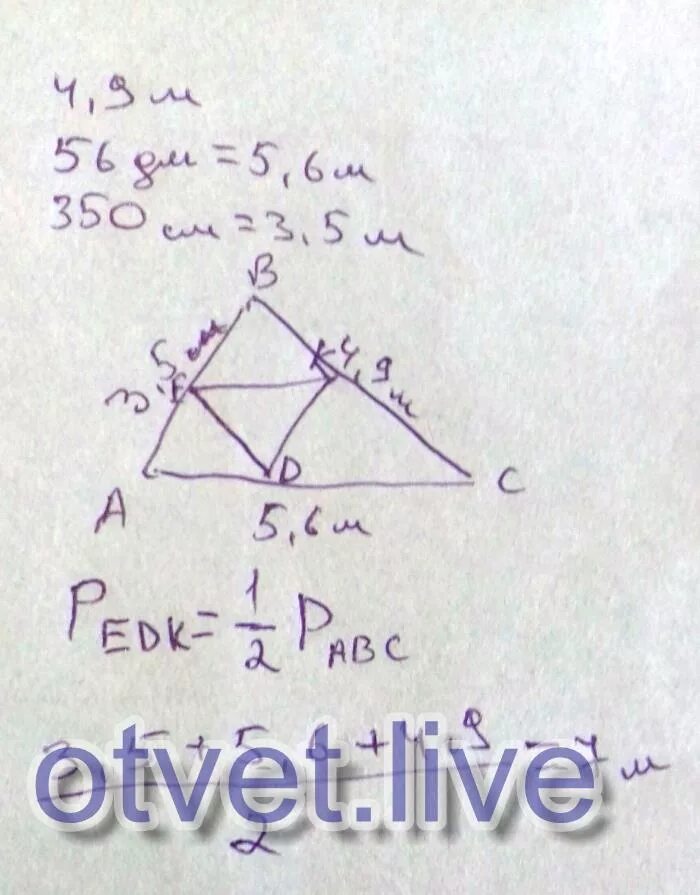 4,9 м
56 дм = 5,6 м
350 см = 3,5 м
B
3,5 м
E
K
4,9 м
A
D
C
5,6 м
P EDK = 1/2 P ABC
3,5 + 5,6 + 4,9 = 7 м
2
otvet.live